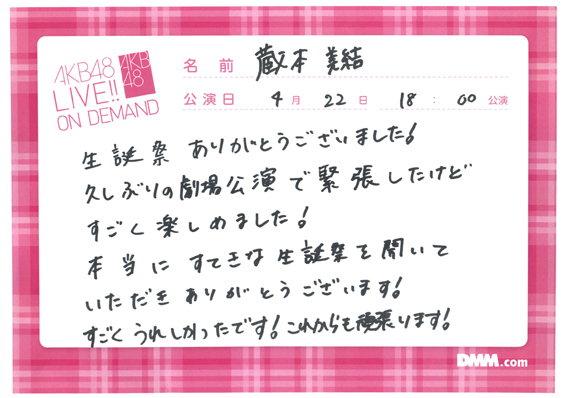 AKB48
LIVE!!
ON DEMAND
AKB
48
名前 蔵本 美結
公演日 4月 22日 18:00公演
生誕祭 ありがとうございました!
久しぶりの劇場公演で緊張したけど
すごく楽しめました!
本当に すてきな生誕祭を開いて
いただき ありがとうございます!
すごくうれしかったです!これからも頑張ります!
DMM.com